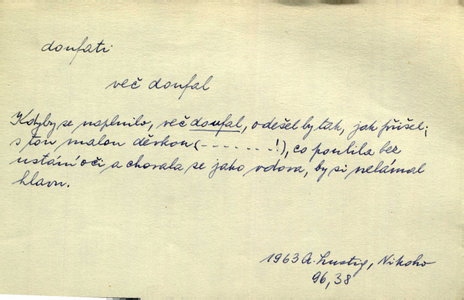 doufati
več doufal
Kdyby se naplnilo, več doufal, odešel by tak, jak přišel;
s tou malou děvkou (- - - - - - - !), co poulila bez
ustání oči a chovala se jako vdova, by si nelámal
hlavu.
1963 A. Lustig, Nikoho
96,38